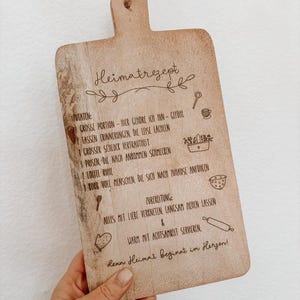 Heimatrezept
ZUTATEN:
1 GROSSE PORTION – HIER GEHÖRE ICH HIN – GEFÜHL
TASSEN ERINNERUNGEN, DIE LEISE LACHEN
1 GROSSER SCHUSS VERTRAUTHEIT
PRISEN, DIE NACH ANKOMMEN SCHMECKEN
1 LÖFFEL RUHE
VOLL MENSCHEN, DIE SICH NACH ZUHAUSE ANFÜHLEN
ZUBEREITUNG:
ALLES MIT LIEBE VERKNETEN, LANGSAM ATMEN LASSEN
&
WARM MIT ACHTSAMKEIT SERVIEREN.
denn Heimat beginnt im Herzen!